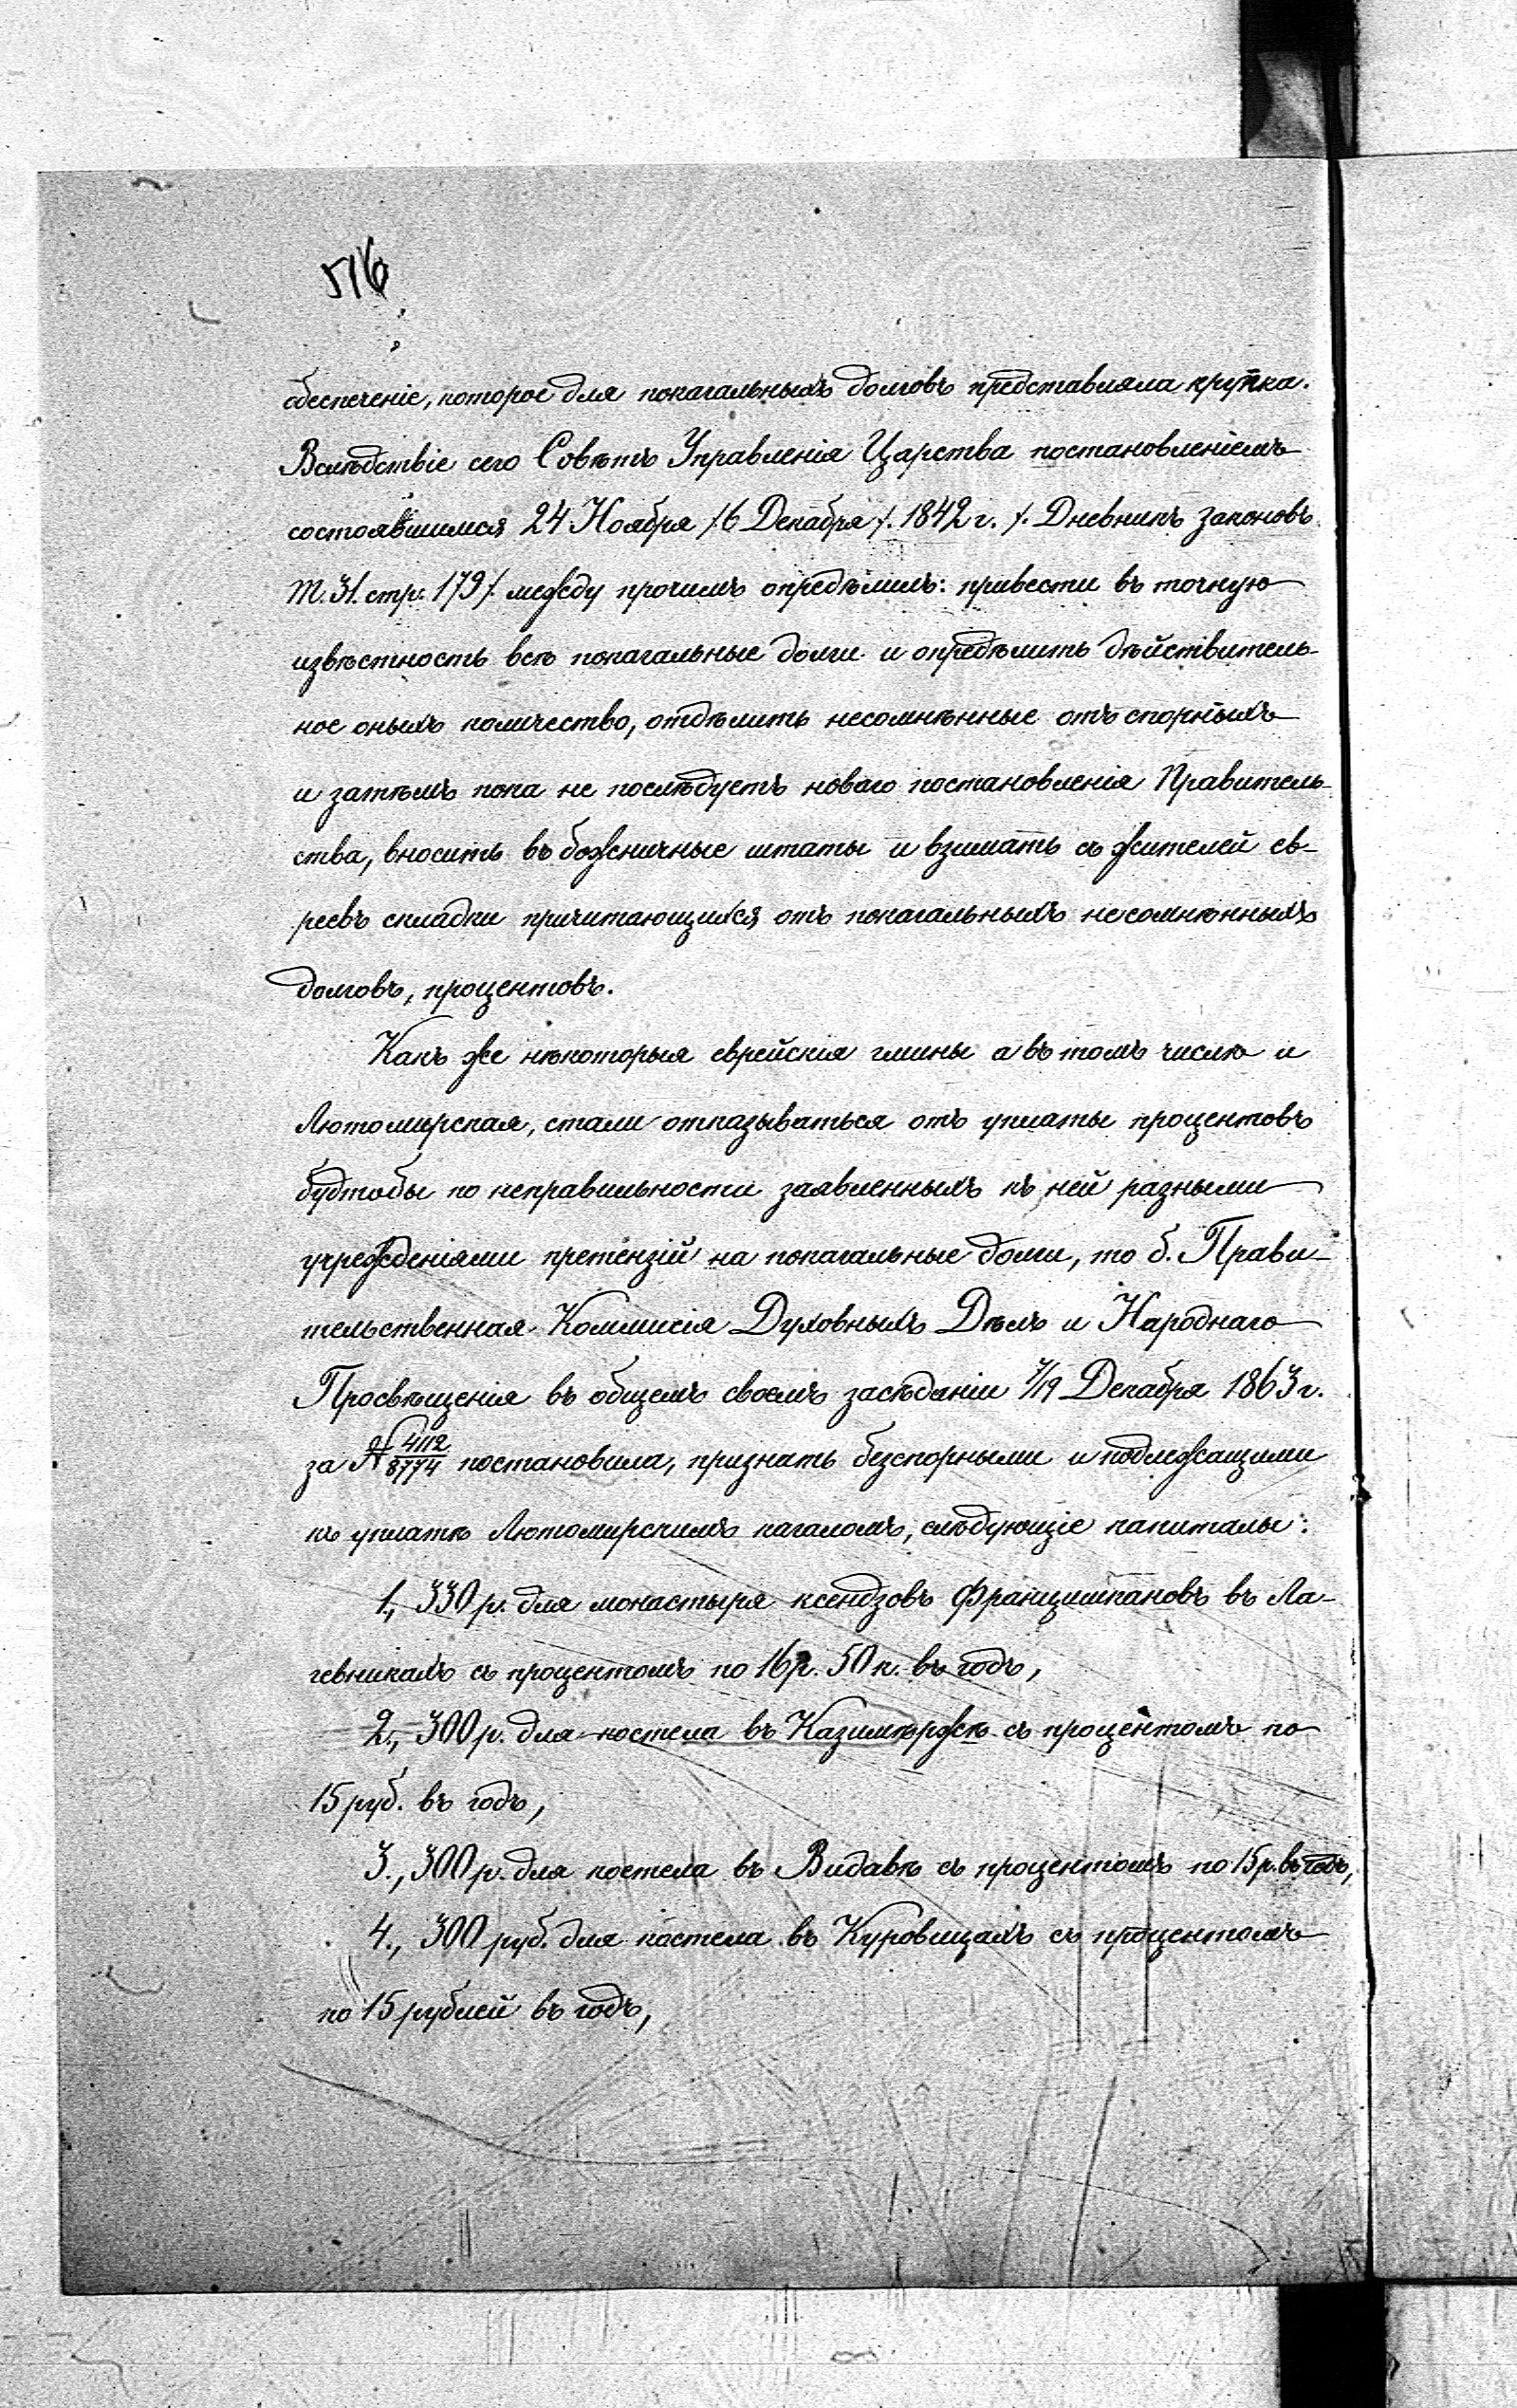 516
обеспеченіе, которое для покагальныхъ долговъ представляла крупка.
Вслѣдствіе сего Совѣтъ Управленія Царства постановленіемъ
состоявшимся 24 Ноября /6 Декабря/. 1842 г. /. Дневникъ законовъ
т. 31. стр. 179/. между прочимъ опредѣлилъ: привести въ точную
извѣстность всѣ покагальные долги и опредѣлить дѣйствитель-
ное оныхъ количество, отдѣлить несомнѣнные отъ спорныхъ
и затѣмъ пока не послѣдуетъ новаго постановленія Правитель-
ства, вносить въ божничные штаты и взимать съ жителей ев-
реевъ складки причитающихся отъ покагальныхъ несомнѣнныхъ
долговъ, процентовъ.
Какъ же нѣкоторыя еврейскія гмины а въ томъ числѣ и
Лютомирская, стали отказываться отъ уплаты процентовъ
будтобы по неправильности заявленныхъ къ ней разными
учрежденіями претензій на покагальные долги, то б. Прави-
тельственная Коммисія Духовныхъ Дѣлъ и Народнаго
Просвѣщенія въ общемъ своемъ засѣданіи 7/19 Декабря 1863 г.
за № 4112/8774 постановила, признать безспорными и подлежащими
къ уплатѣ Лютомирскимъ кагаломъ, слѣдующіе капиталы:
1., 330 р. для монастыря ксендзовъ Францишкановъ въ Ла-
гевникахъ съ процентомъ по 16 р. 50 к. въ годъ,
2., 300 р. для костела въ Казимѣржѣ съ процентомъ по
15 руб. въ годъ,
3., 300 р. для костела въ Видавѣ съ процентомъ по 15 р. въ годъ,
4., 300 руб. для костела въ Куровицахъ съ процентомъ
по 15 рублей въ годъ,